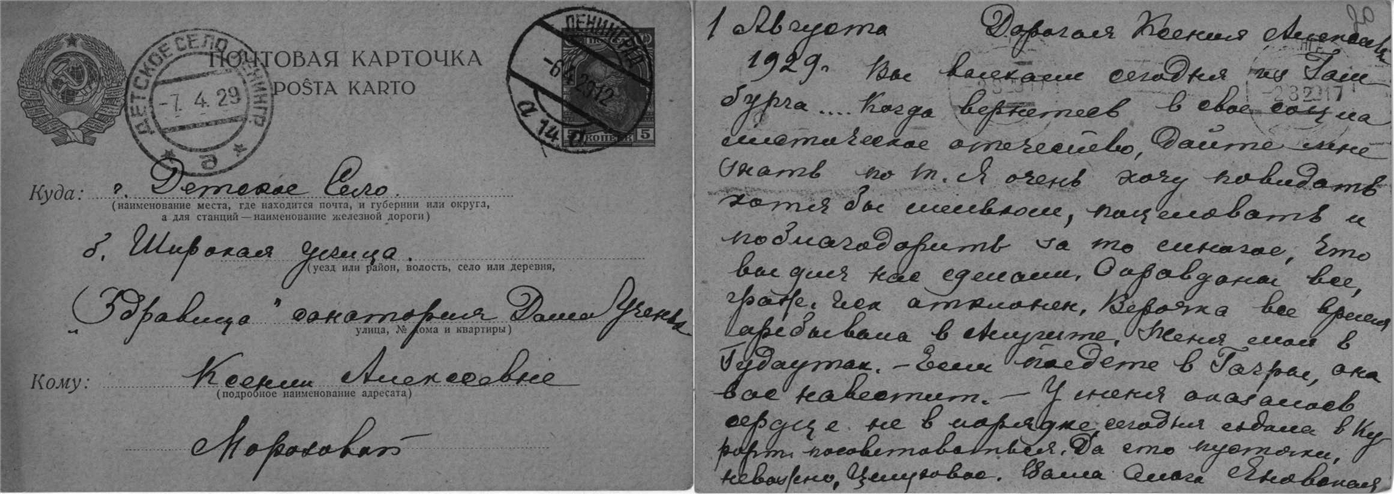 ПОЧТОВАЯ КАРТОЧКА
POŜTA KARTO
ДЕТСКОЕ СЕЛО ЛЕНИНГР
-7. 4. 29
а
ЛЕНИНГРАД
-6.4.29.12
5 КОПЕЕК 5
Куда: г. Детское Село.
(наименование места, где находится почта, и губернии или округа,
а для станций — наименование железной дороги)
б. Широкая улица.
(уезд или район, волость, село или деревня,
"Здравица" санатория Дома Учены
улица, № дома и квартиры)
Кому: Ксении Алексеевне
(подробное наименование адресата)
Морозовой
1 Августа Дорогая Ксения Алексеевн
1929. Вы выехали сегодня из Гам
бурга.... Когда вернетесь в свое социа
листическое отечество, дайте мне
знать по т. Я очень хочу повидать
хотя бы мельком, поцеловать и
поблагодарить за то многое, что
вы для нас сделали. Оправданы все,
граж. иск отклонен. Верочка все время
пребывала в Алуште. Женя мой в
Гудаутах. — Если поедете в Гагры, она
вас навестит. — У меня оказалось
сердце не в порядке, сегодня ездила в Ку
рорт. посоветоваться. Да это пустяки,
неважно, Целую вас. Ваша Ольга Яновская